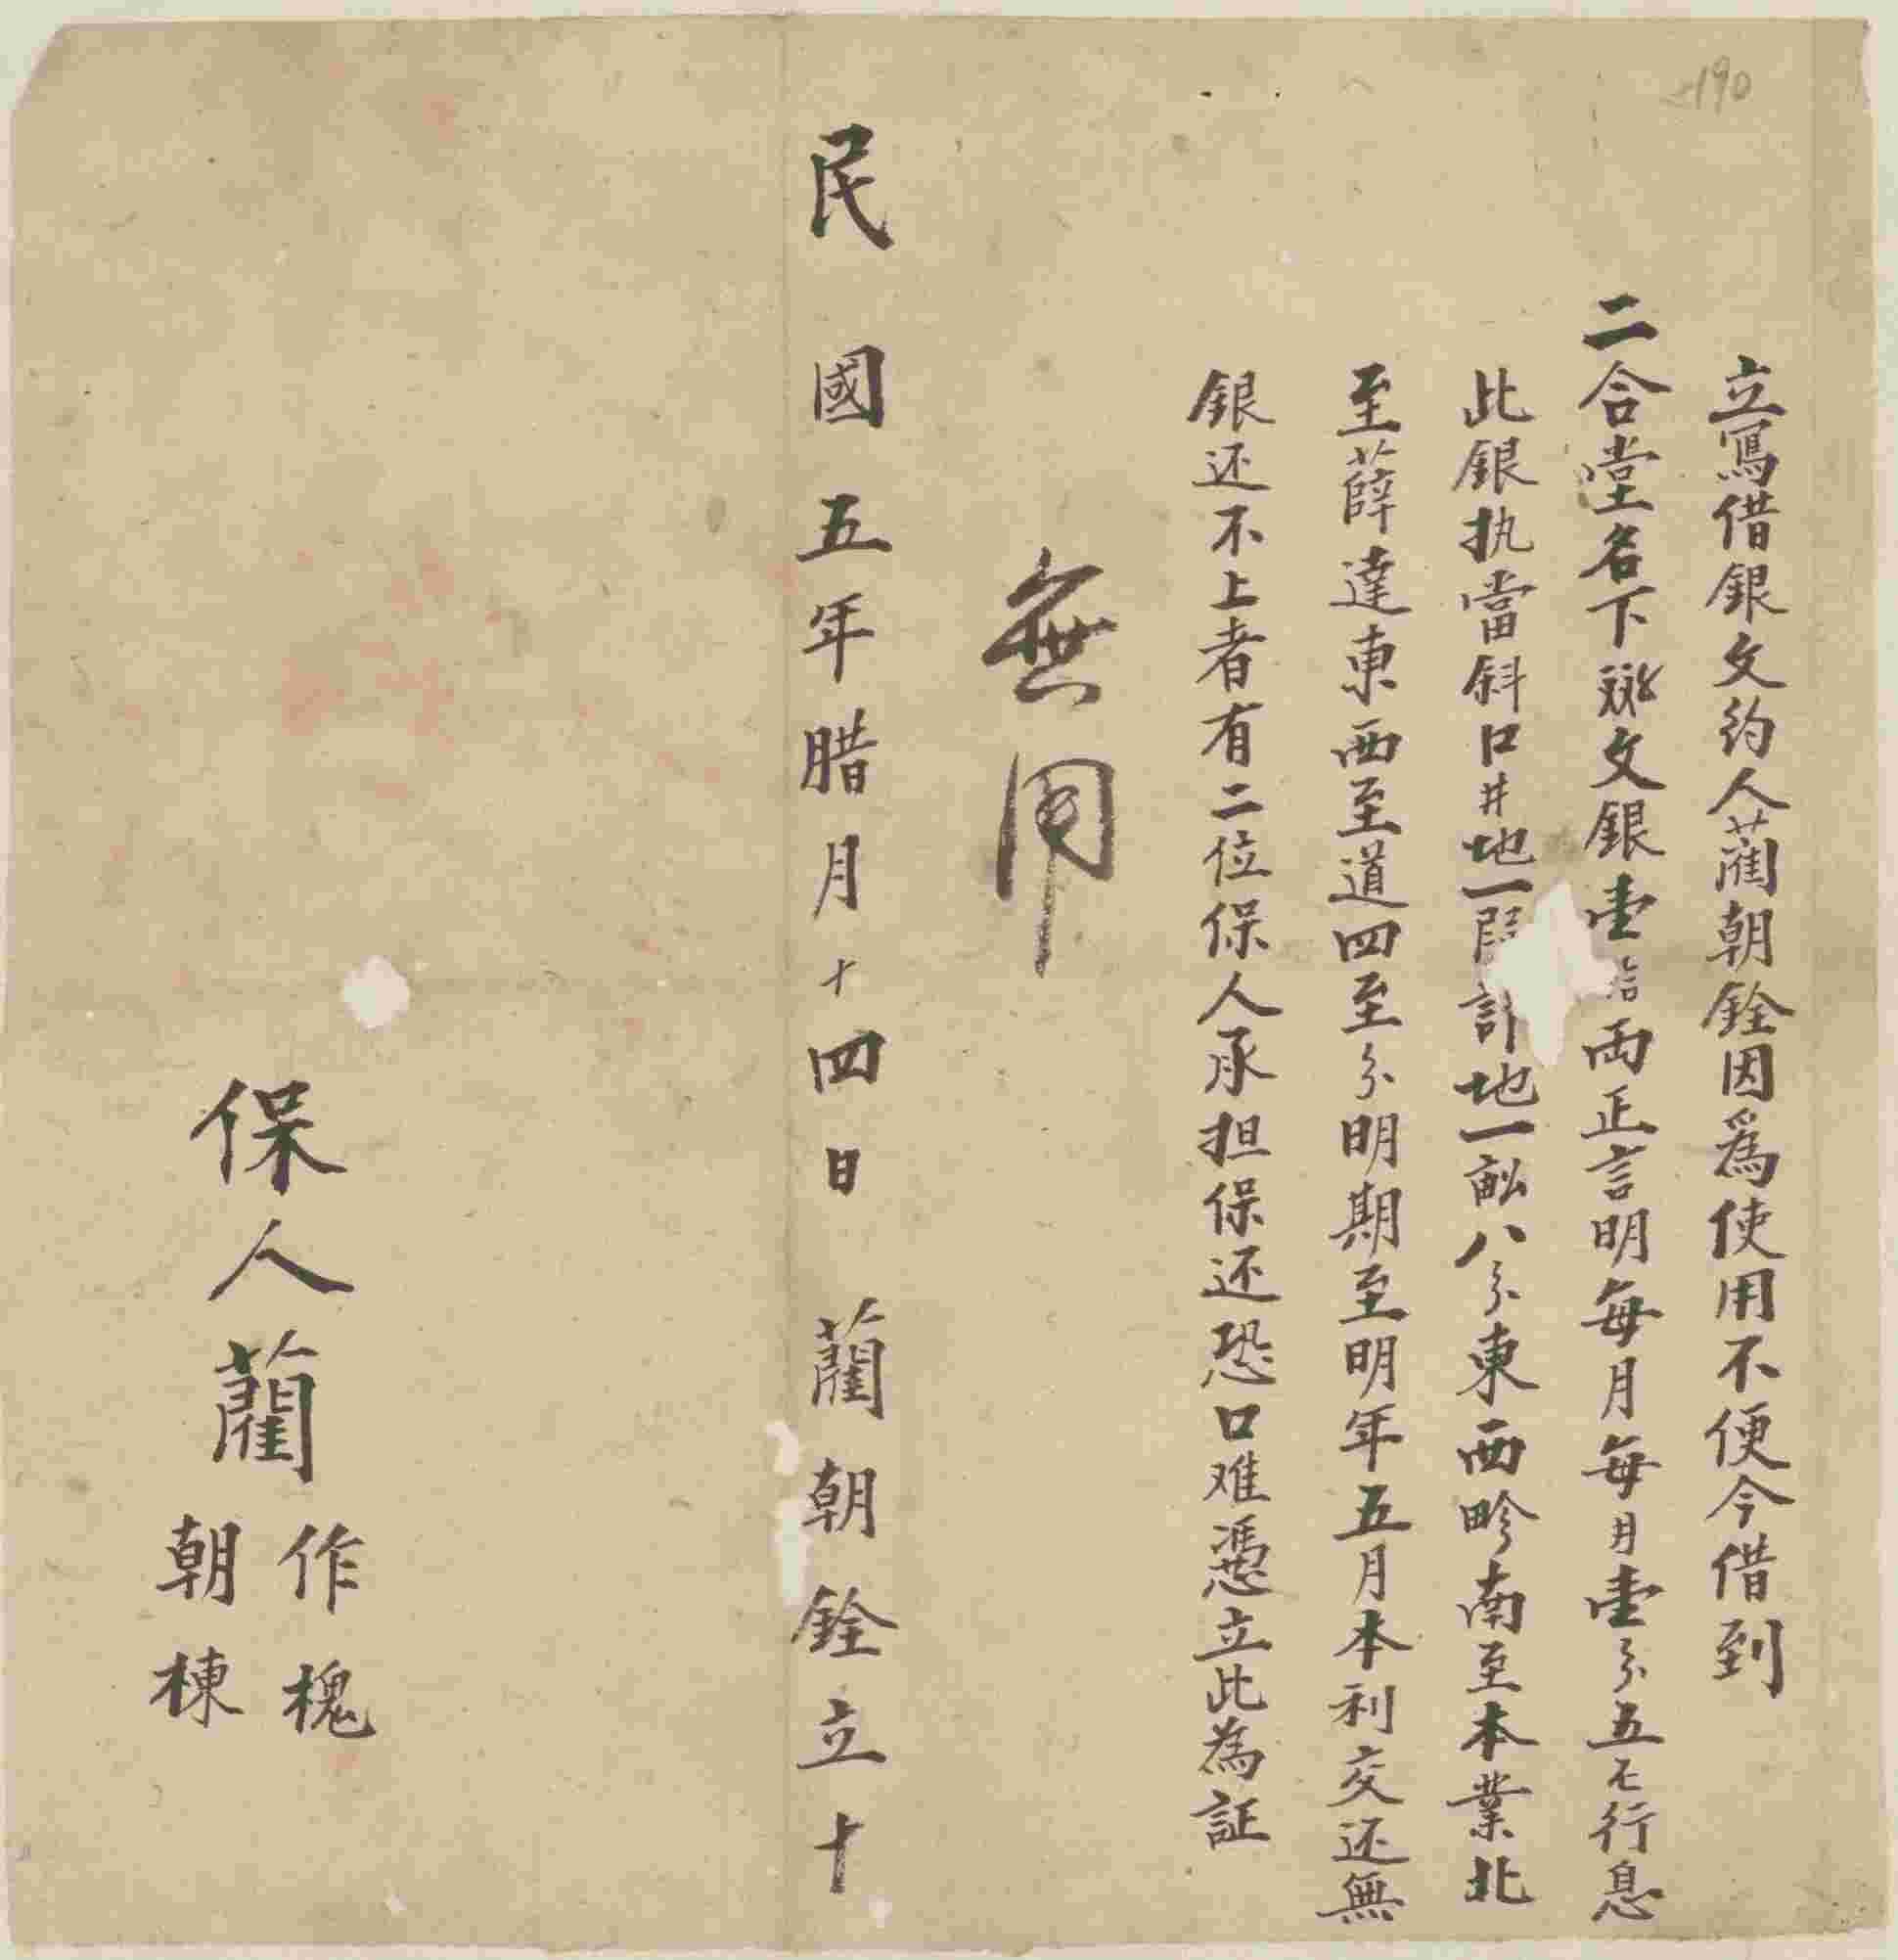 190
立寫借銀文約人藺朝銓因爲使用不便今借到
二合堂名下文銀壹拾兩正言明每月每月壹分五厘行息
此銀执當斜口井地一段計地一畝八分東西畛南至本業北
至薛達東西至道四至分明期至明年五月本利交还無
銀还不上者有二位保人承担保还恐口难憑立此為証
無用
民國五年腊月十四日藺朝銓立十
保人藺
作槐
朝棟